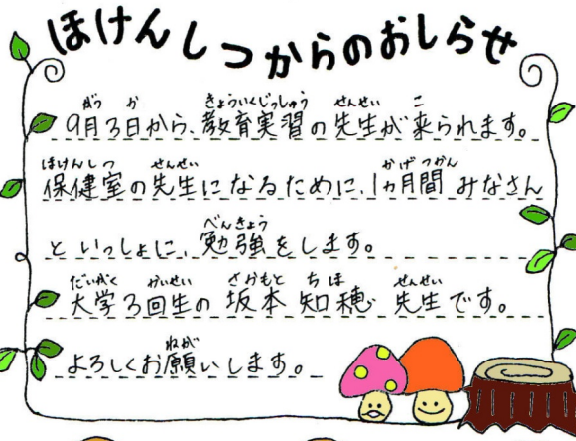 ほけんしつからのおしらせ
9月3日から、教育実習の先生が来られます。
保健室の先生になるために、1ヵ月間みなさん
といっしょに、勉強をします。
大学3回生の坂本 知穂 先生です。
よろしくお願いします。